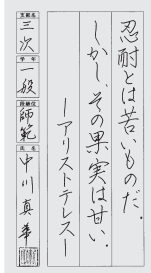 忍耐とは苦いものだ。
しかし、その果実は甘い。
―アリストテレス―
支部名
三次
学年
一般
段級位
師範
氏名
中川真華